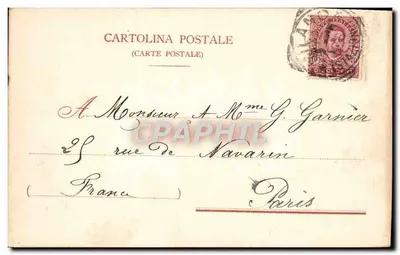 CARTOLINA POSTALE
(CARTE POSTALE)
A Monsieur & Mme G. Garnier
25 rue de Navarin
(France)
Paris
CPAPHIL